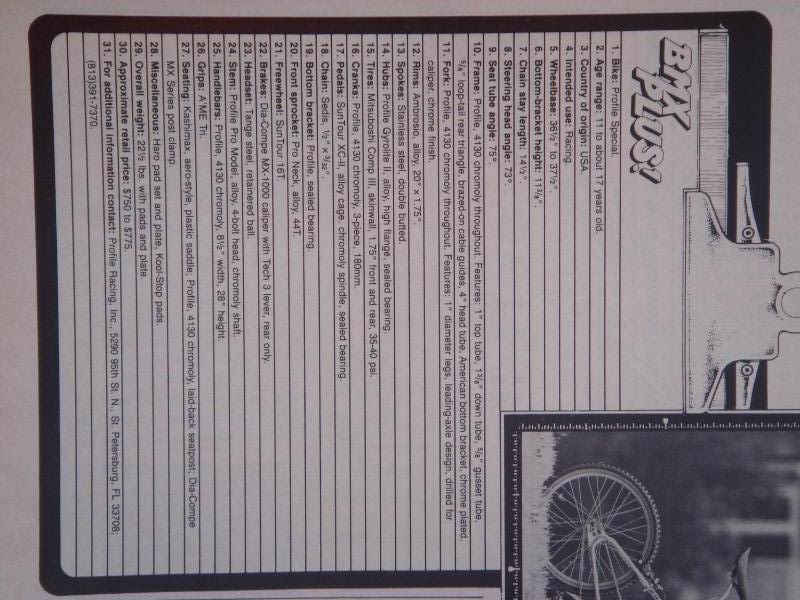 BMX PLUS!
1. Bike: Profile Special.
2. Age range: 11 to about 17 years old.
3. Country of origin: USA.
4. Intended use: Racing.
5. Wheelbase: 36½" to 37½".
6. Bottom-bracket height: 11³/₈".
7. Chain stay length: 14½".
8. Steering head angle: 73°.
9. Seat tube angle: 75°
10. Frame: Profile, 4130 chromoly throughout. Features: 1" top tube, 1³/₈" down tube, ⁵/₈" gusset tube,
⁵/₈" loop-tail rear triangle, brazed-on cable guides, 4" head tube, American bottom bracket, chrome plated.
11. Fork: Profile, 4130 chromoly throughout. Features: 1" diameter legs, leading-axle design, drilled for
caliper, chrome finish.
12. Rims: Ambrosio, alloy, 20" × 1.75".
13. Spokes: Stainless steel, double butted.
14. Hubs: Profile Gyrolite II, alloy, high flange, sealed bearing.
15. Tires: Mitsuboshi Comp III, skinwall, 1.75" front and rear, 35-40 psi.
16. Cranks: Profile, 4130 chromoly, 3-piece, 180mm.
17. Pedals: SunTour XC-II, alloy cage, chromoly spindle, sealed bearing.
18. Chain: Sedis, ½" × ³/₃₂".
19. Bottom bracket: Profile, sealed bearing.
20. Front sprocket: Pro Neck, alloy, 44T.
21. Freewheel: SunTour 16T.
22. Brakes: Dia-Compe MX-1000 caliper with Tech 3 lever, rear only.
23. Headset: Tange steel, retainered ball.
24. Stem: Profile Pro Model, alloy, 4-bolt head, chromoly shaft.
25. Handlebars: Profile, 4130 chromoly, 8½" width, 28" height.
26. Grips: A'ME Tri.
27. Seating: Kashimax, aero-style, plastic saddle; Profile, 4130 chromoly, laid-back seatpost; Dia-Compe
MX Series post clamp.
28. Miscellaneous: Haro pad set and plate, Kool-Stop pads.
29. Overall weight: 22½ lbs. with pads and plate.
30. Approximate retail price: $750 to $775.
31. For additional information contact: Profile Racing, Inc., 5290 95th St. N., St. Petersburg, FL 33708;
(813)391-7370.